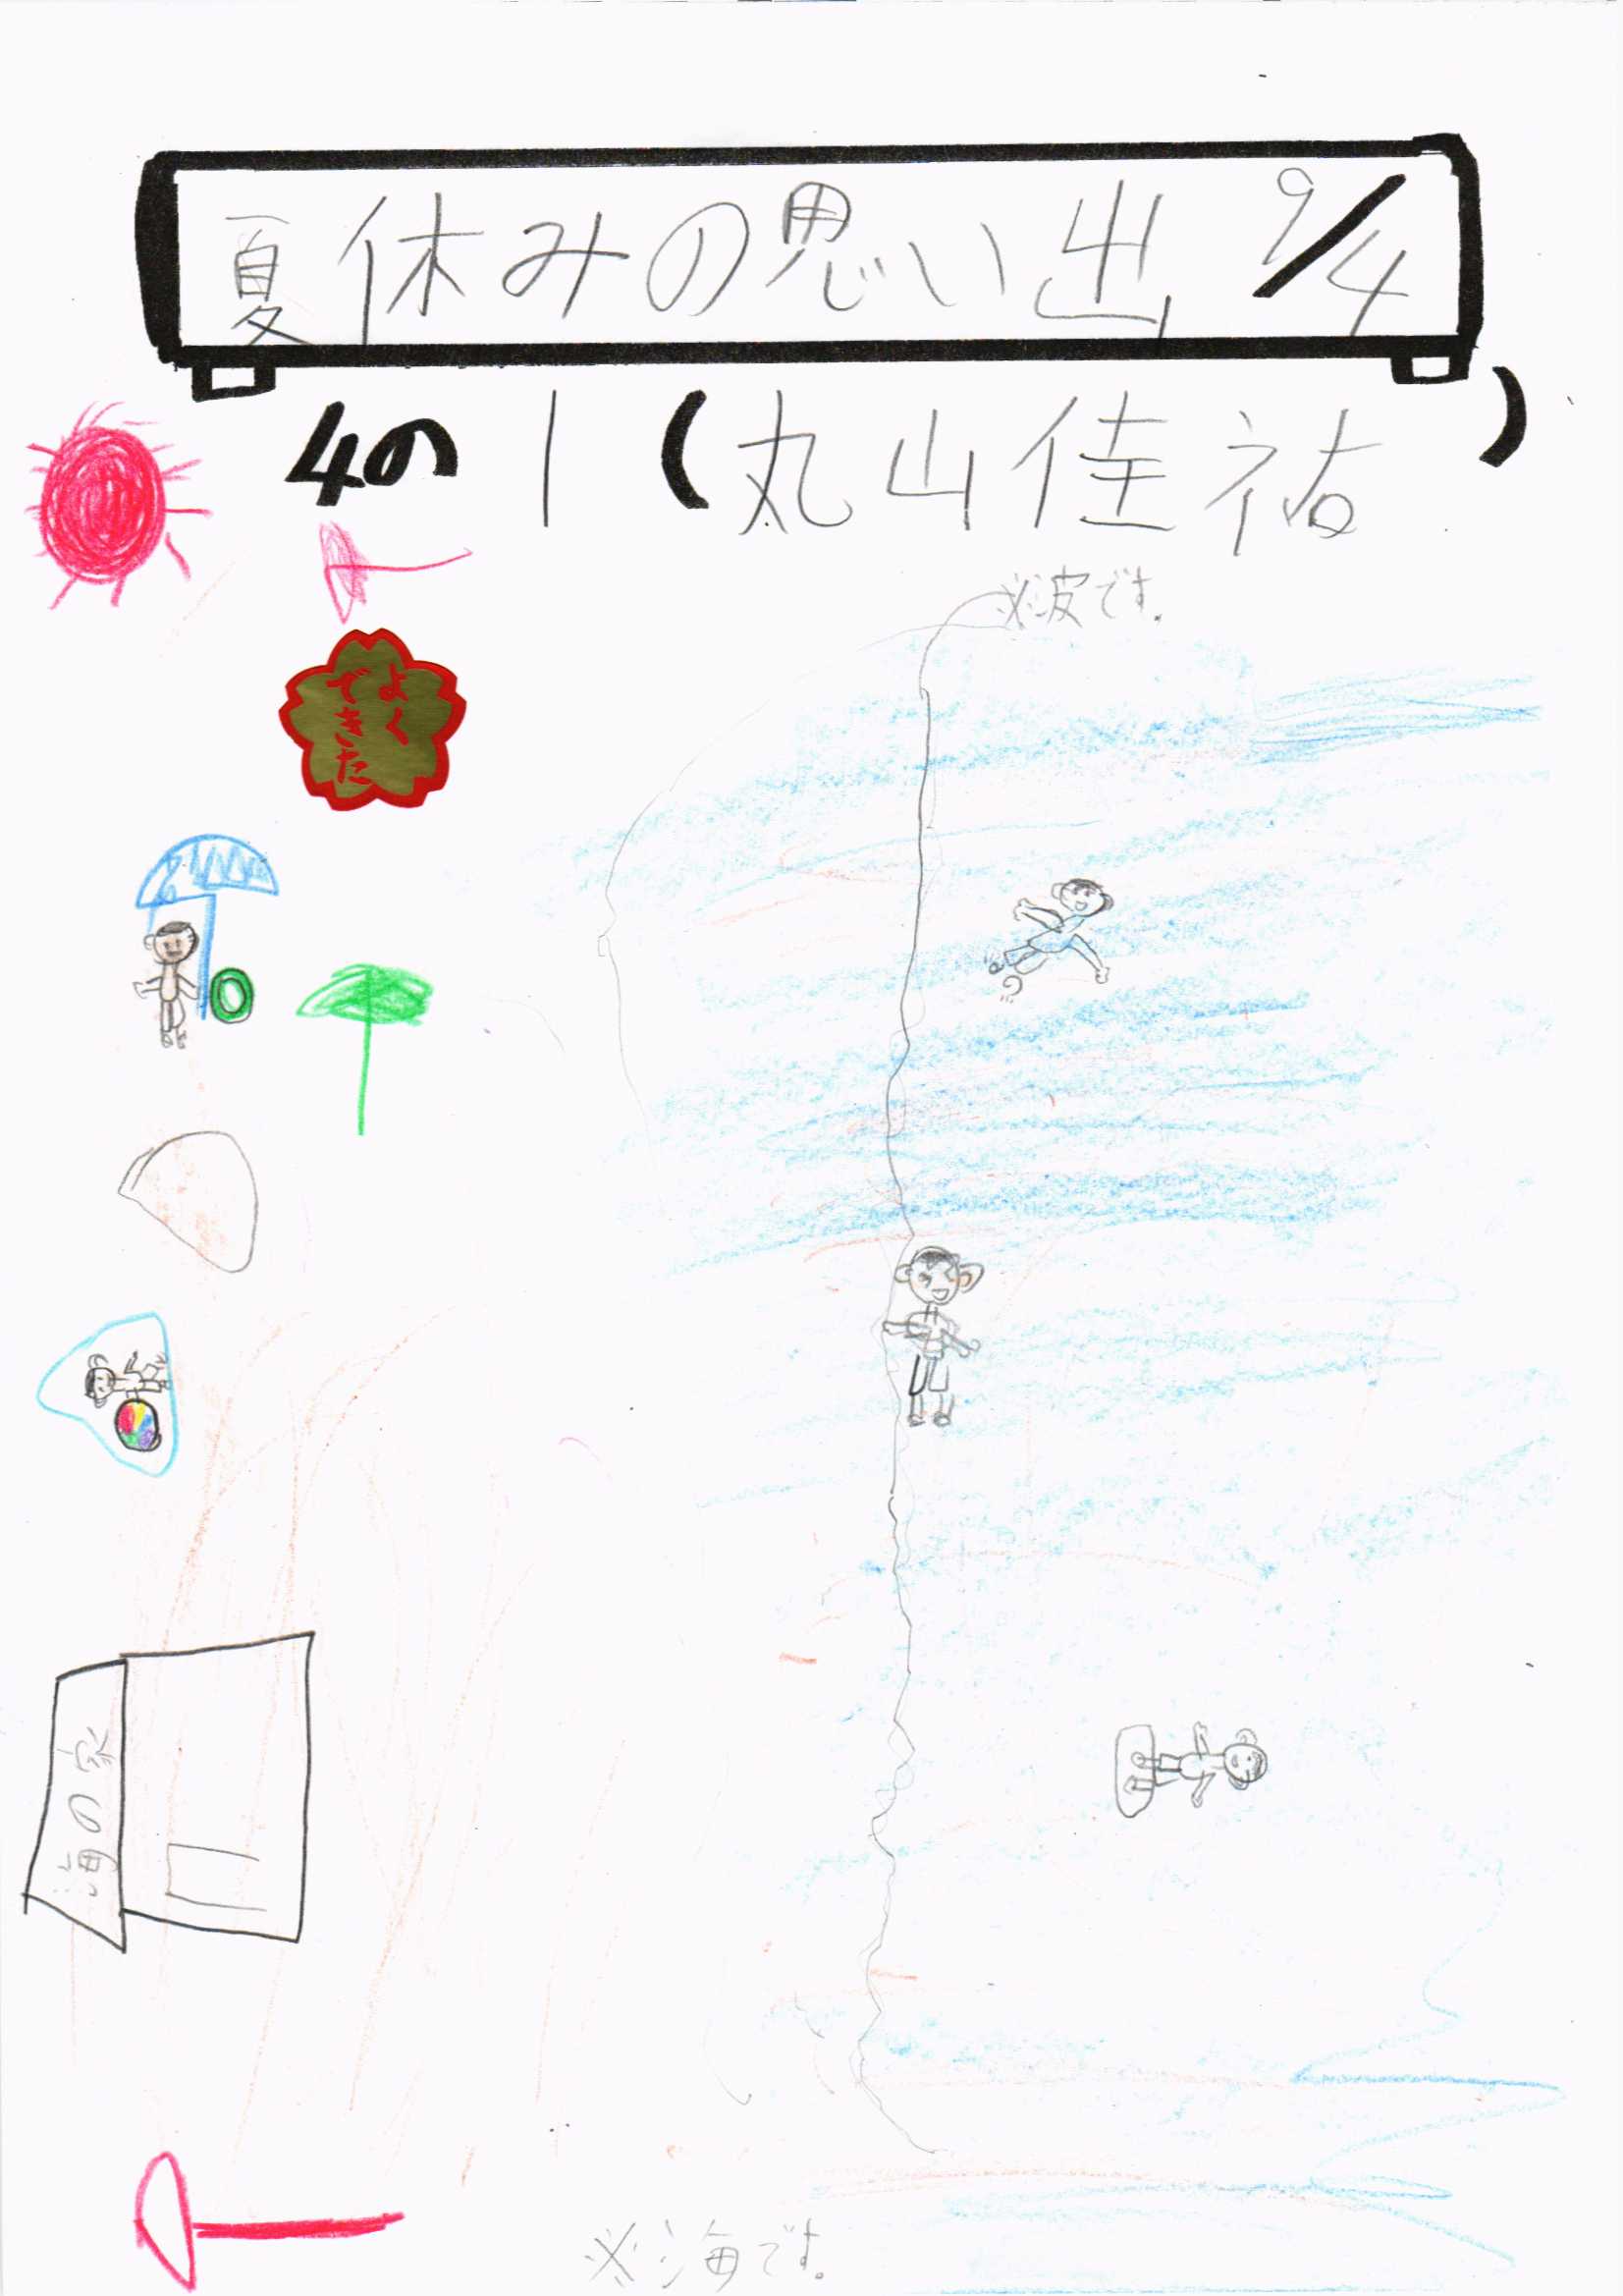 夏休みの思い出 9/4
4の1(丸山佳祐)
※波です。
よく
できた
海の家
※海です。